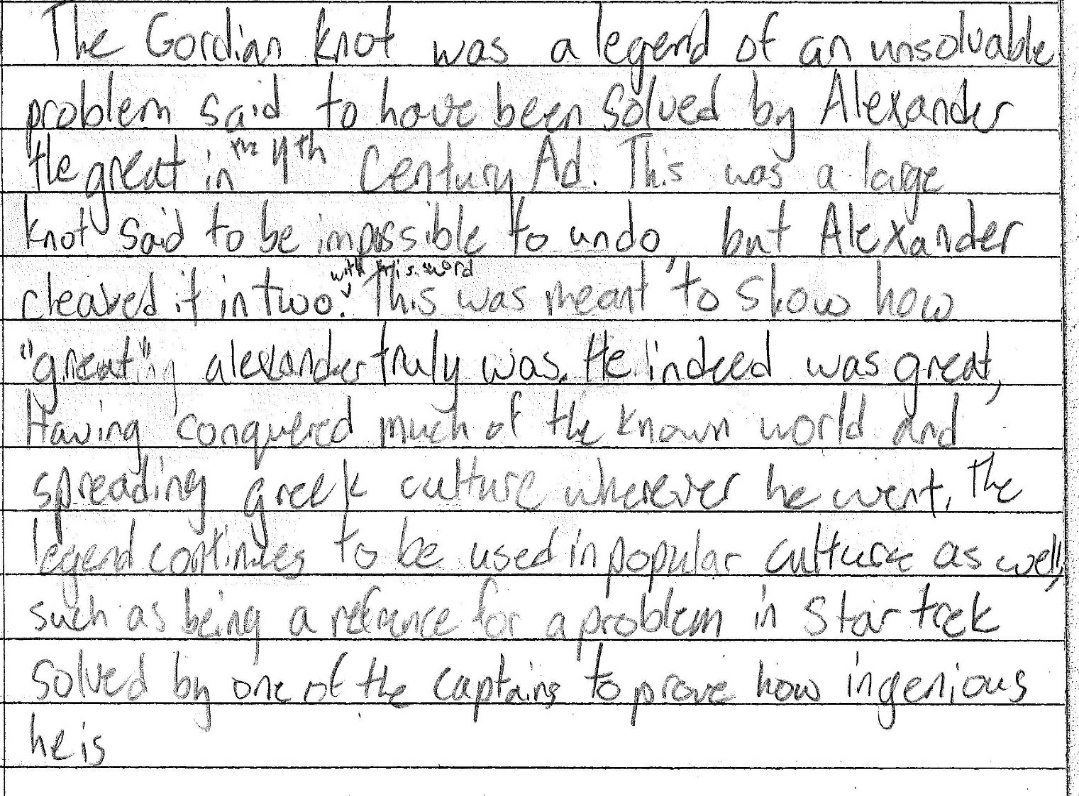 The Gordian knot was a legend of an unsolvable
problem said to have been solved by Alexander
the great in the 4th Century Ad. This was a large
knot said to be impossible to undo, but Alexander
cleaved it in two with his sword. This was meant to show how
"great" alexander truly was. He indeed was great,
Having conquered much of the known world and
spreading greek culture wherever he went. The
legend continues to be used in popular culture as well,
such as being a refrence for a problem in Star trek
solved by one of the captains to prove how ingenious
he is